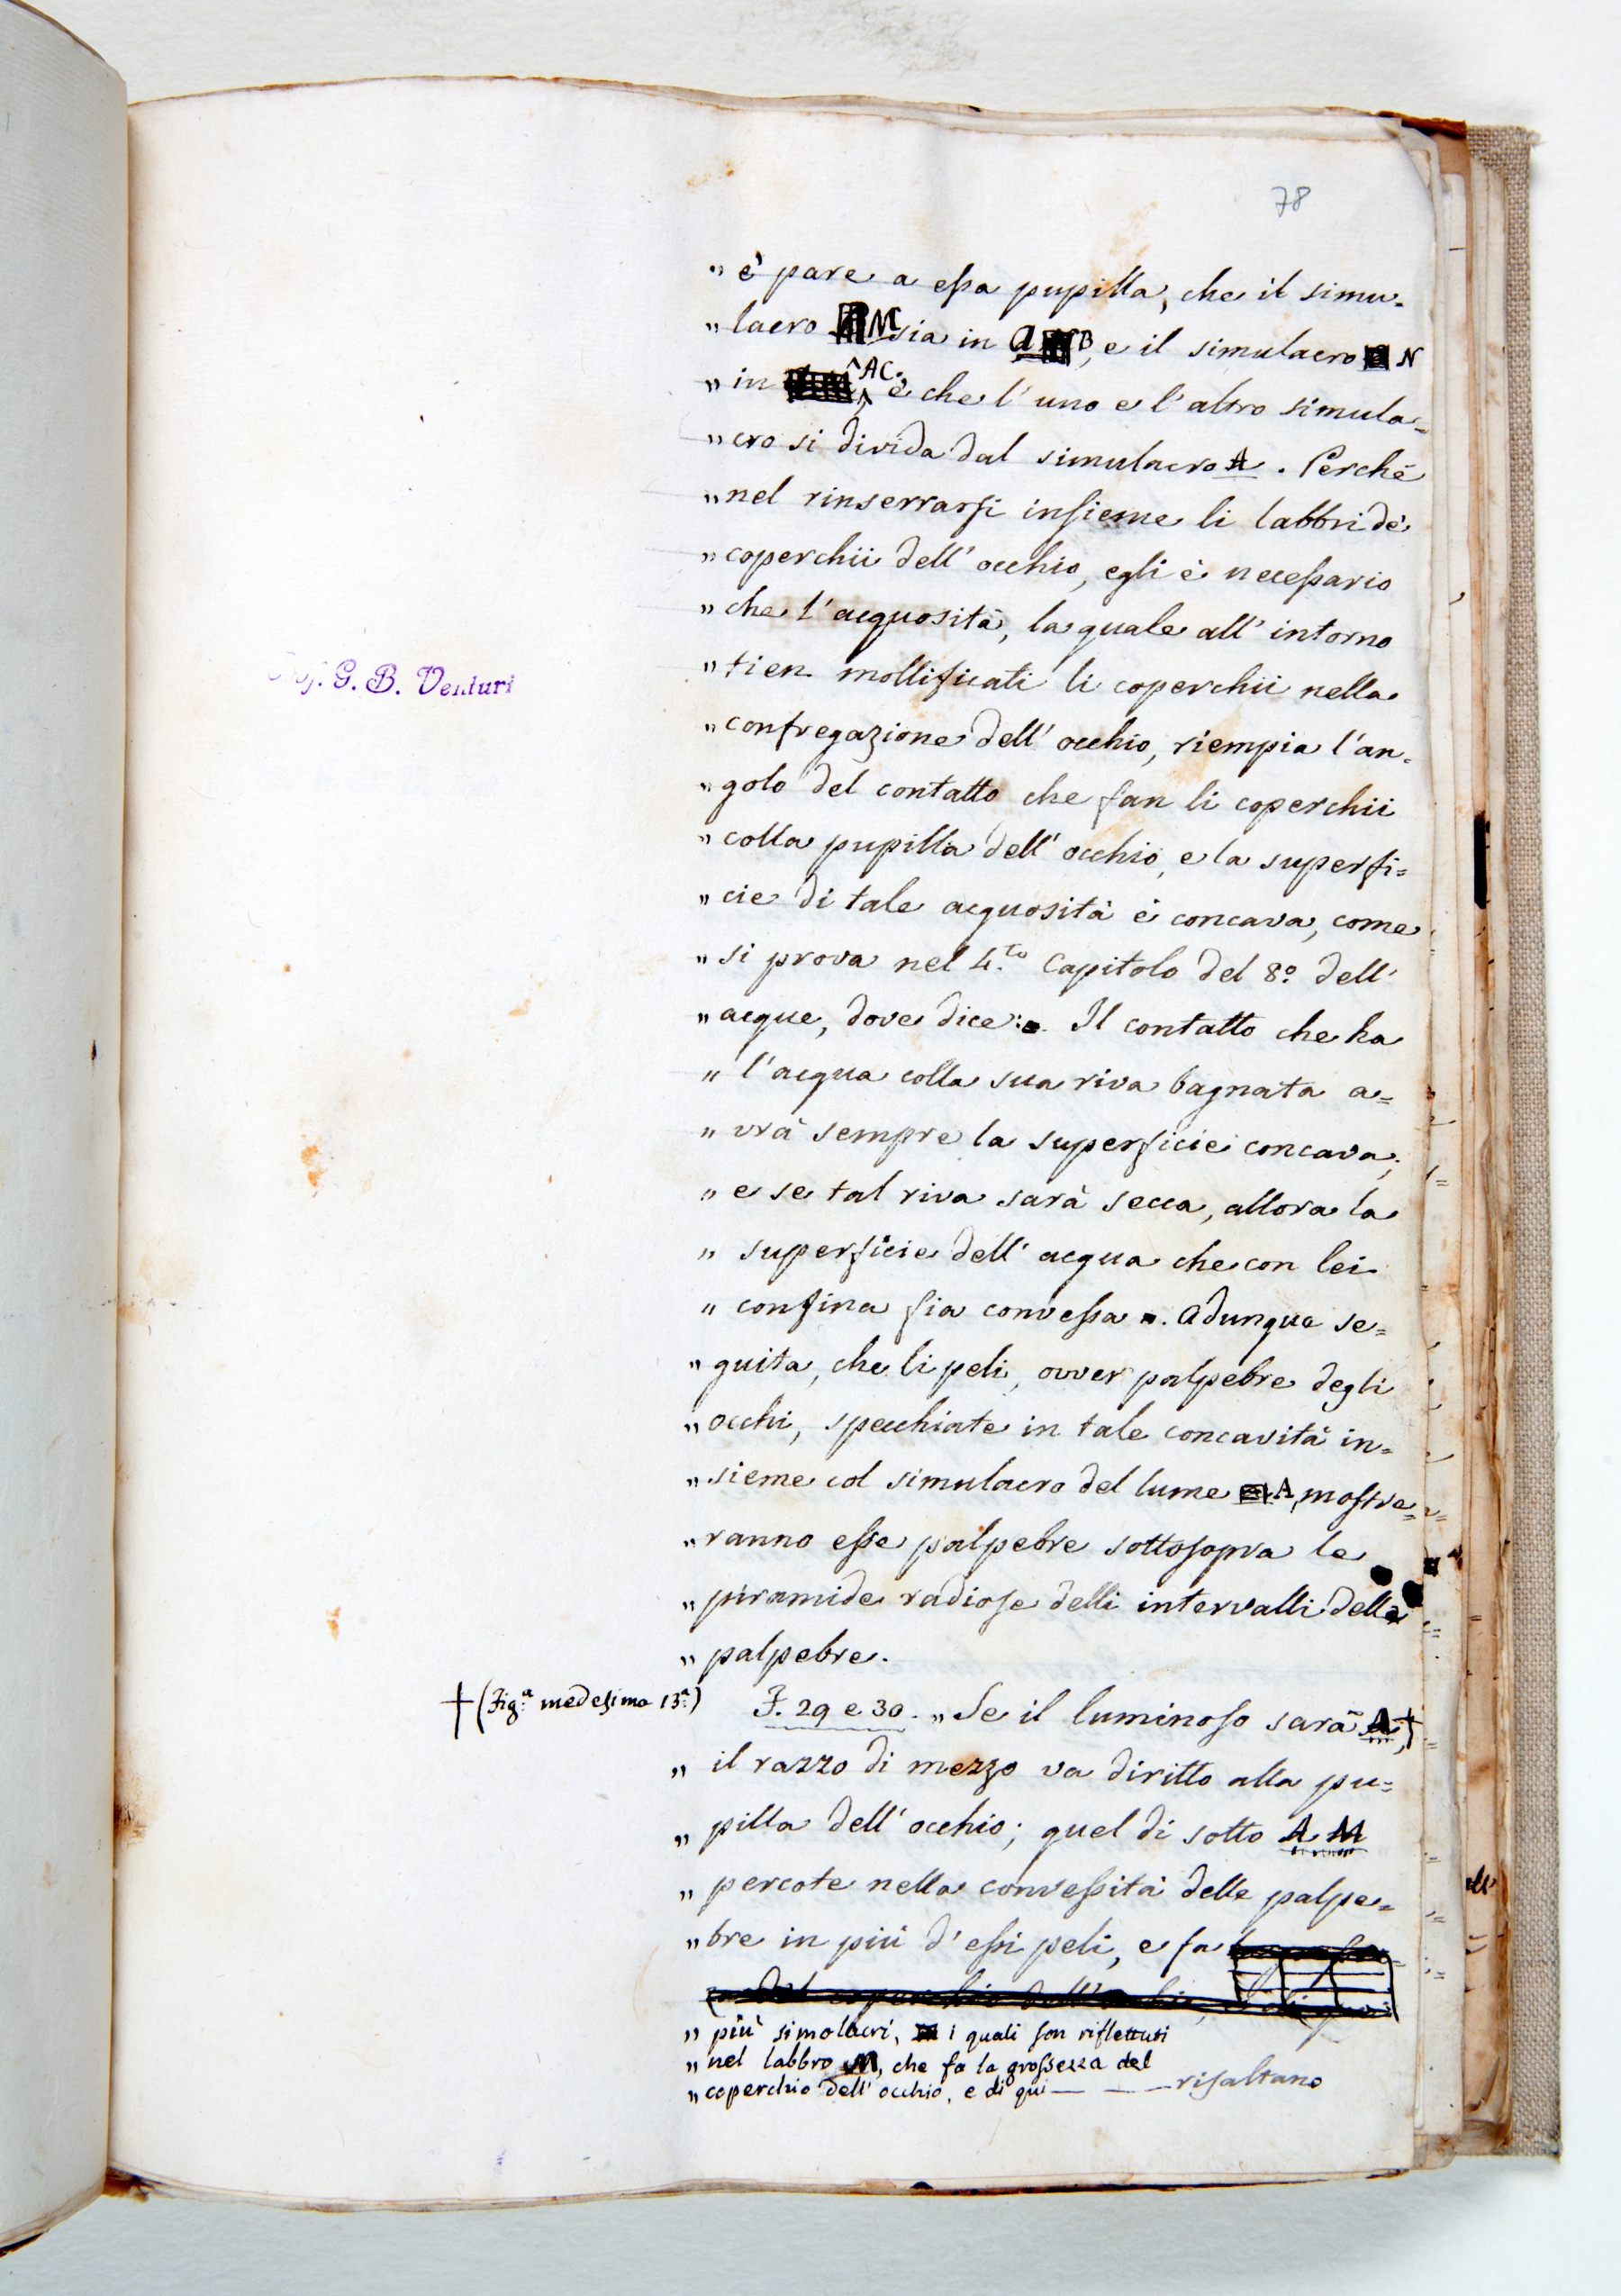 78
„ è pare a essa pupilla, che il simu-
„ lacro M sia in AB, e il simulacro N
„ in AC. è che l' uno e l' altro simula=
„ cro si divida dal simulacro A. Perchè
„ nel rinserrarsi insieme li labbri de'
„ coperchii dell' occhio, egli è necessario
„ che l' acquosità, la quale all' intorno
„ tien mollificati li coperchii nella
„ confregazione dell' occhio, riempia l' an-
„ golo del contatto che fan li coperchii
„ colla pupilla dell' occhio, e la superfi=
„ cie di tale acquosità è concava, come
„ si prova nel 4.to Capitolo del 8.o dell'
„ acque, dove dice: Il contatto che ha
„ l' acqua colla sua riva bagnata a=
„ vrà sempre la superficie concava;
„ e se tal riva sarà secca, allora la
„ superficie dell' acqua che con lei
„ confina sia convessa. Adunque se=
„ guita, che li peli, ovver palpebre degli
„ occhi, specchiate in tale concavità in=
„ sieme col simulacro del lume A, mostre=
„ ranno esse palpebre sottosopra le
„ piramide radiose delli intervalli delle
„ palpebre.
Prof. G. B. Venturi
† (Fig.a medesima 13.a)
F. 29 e 30. „ Se il luminoso sarà A, †
„ il razzo di mezzo va diritto alla pu=
„ pilla dell' occhio; quel di sotto A M
„ percote nella convessità delle palpe=
„ bre in più d' essi peli, e fa
„ più simolacri, i quali son riflettuti
„ nel labbro M, che fa la grossezza del
„ coperchio dell' occhio, e di qui — — risaltano